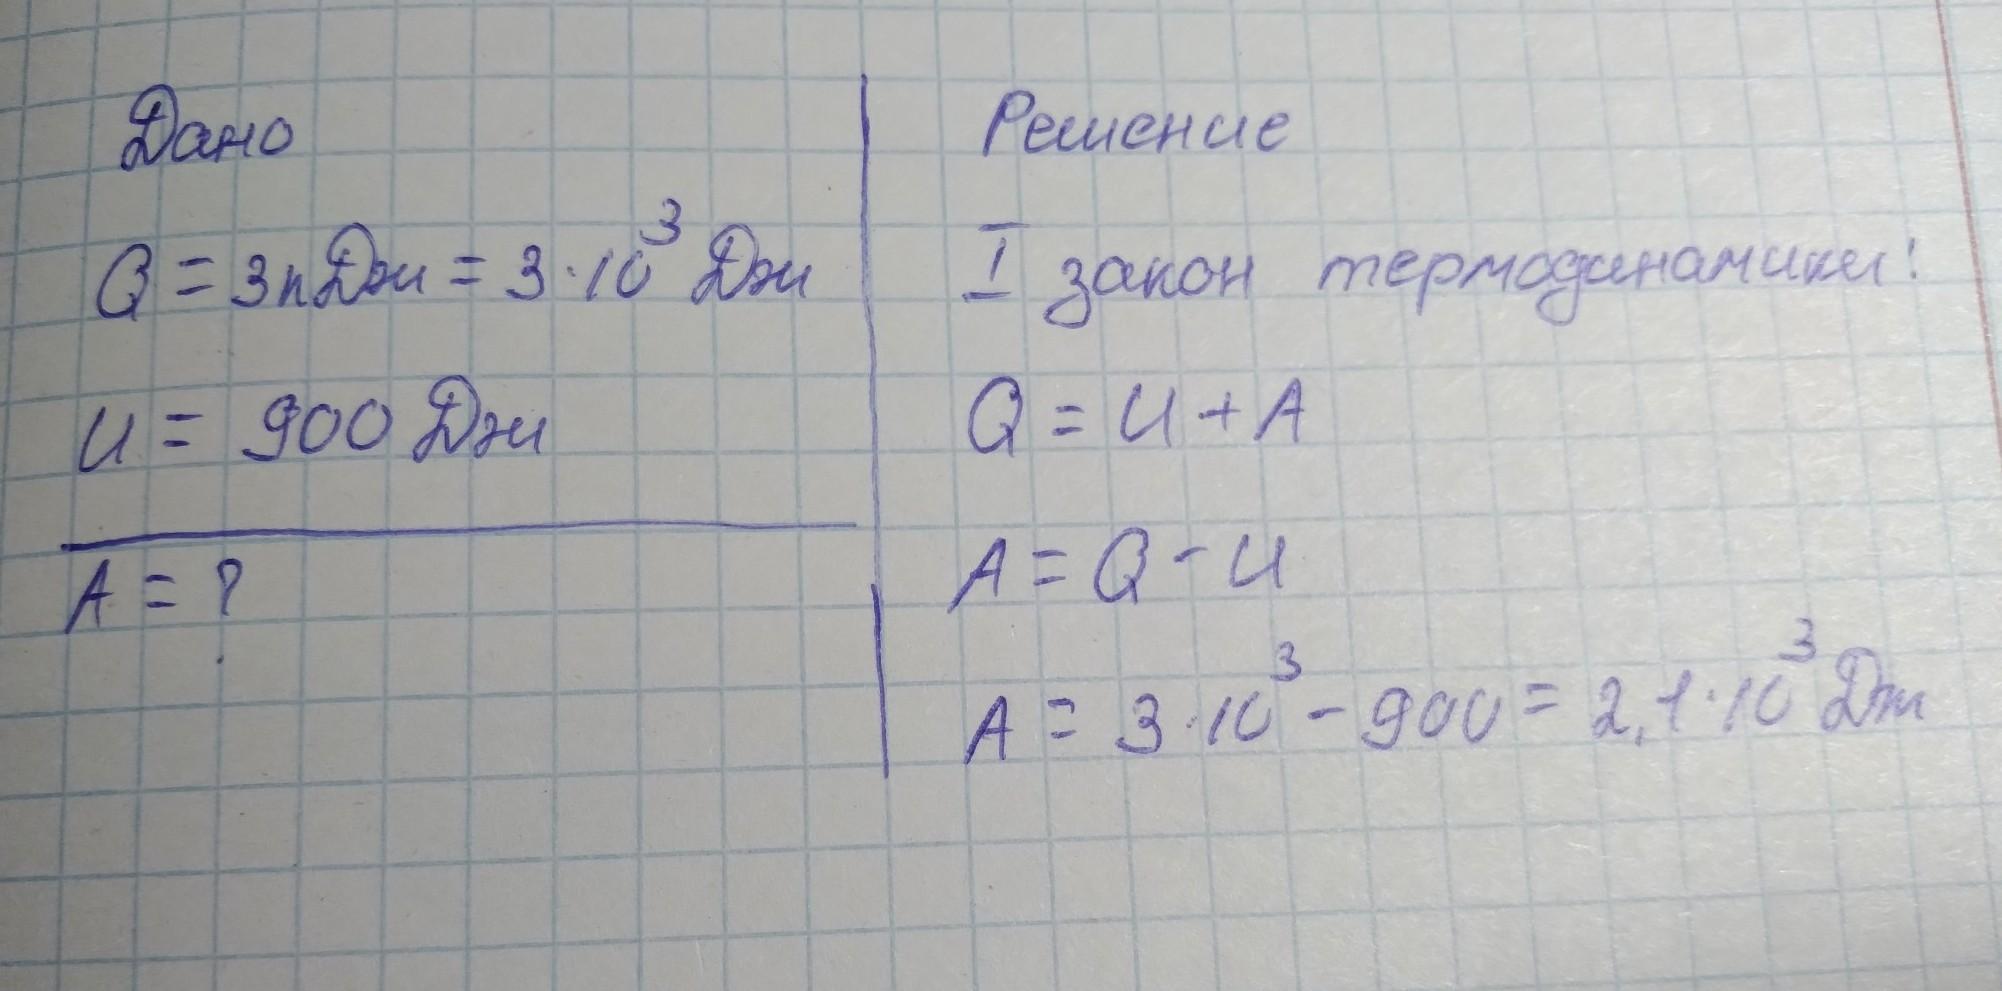 Дано
Q = 3кДж = 3·10³ Дж
U = 900 Дж
A = ?
Решение
I закон термодинамики:
Q = U + A
A = Q - U
A = 3·10³ - 900 = 2,1·10³ Дж